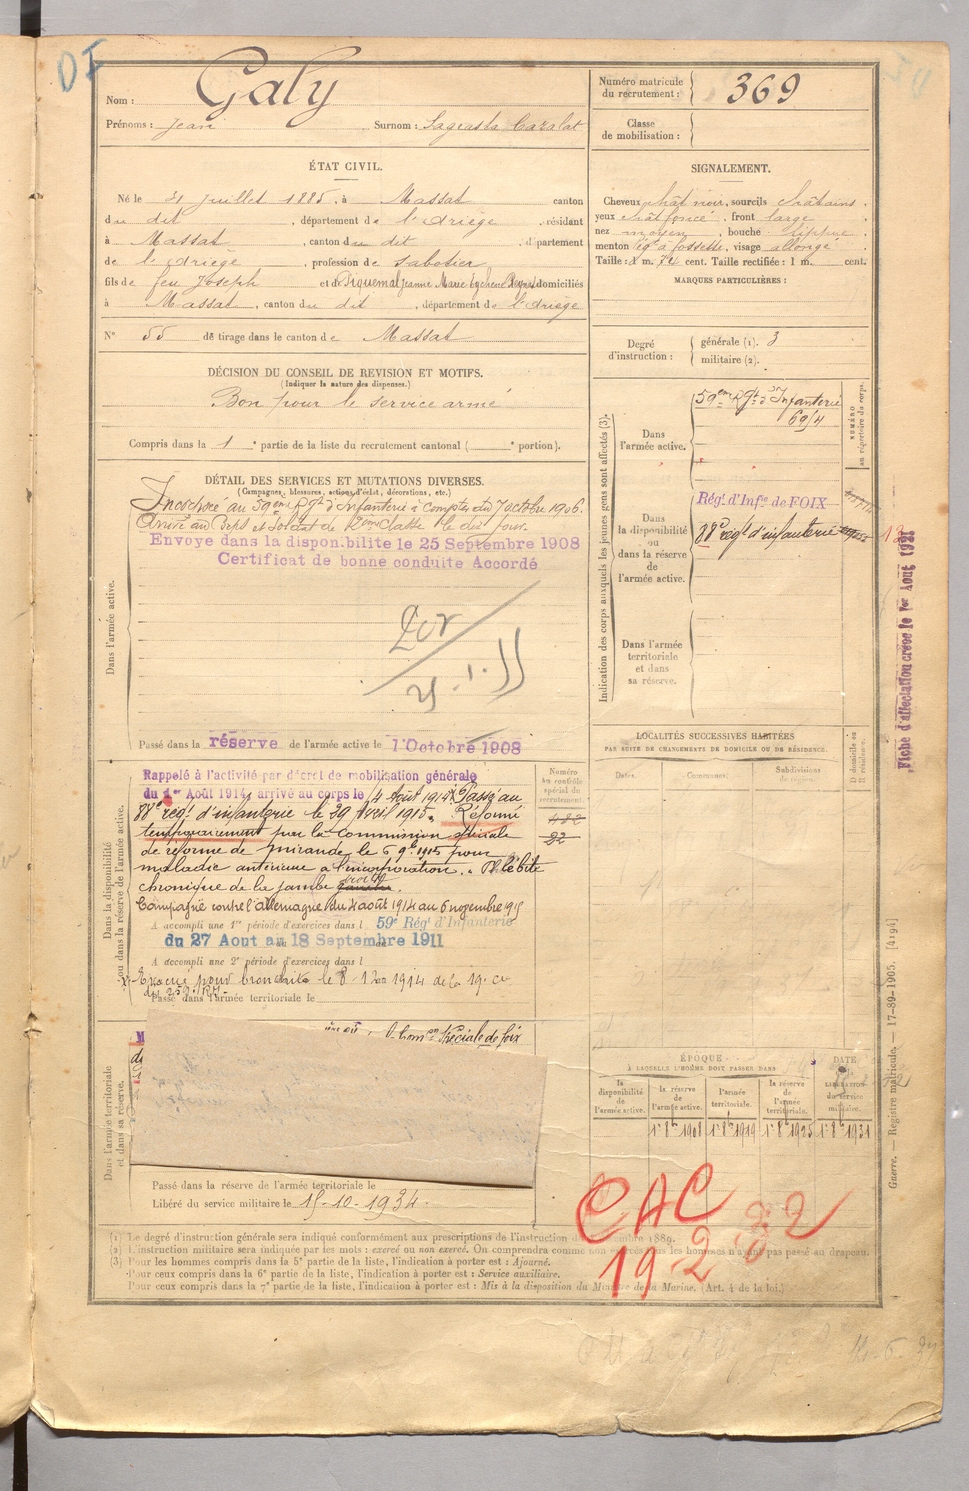 Nom : Galy
Prénoms : Jean Surnom : Sageasta Caralat
ÉTAT CIVIL.
Né le 31 juillet 1885, à Massat canton
du dit, département de l'Ariège, résidant
à Massat, canton du dit, département
de l'Ariège, profession de sabotier
fils de feu Joseph et de Piquemal Jeanne Marie domiciliés
à Massat, canton du dit, département de l'Ariège
N° 55 de tirage dans le canton de Massat
DÉCISION DU CONSEIL DE REVISION ET MOTIFS.
(Indiquer la nature des dispenses.)
Bon pour le service armé
Compris dans la 1e partie de la liste du recrutement cantonal ( e portion).
DÉTAIL DES SERVICES ET MUTATIONS DIVERSES.
(Campagnes, blessures, actions d'éclat, décorations, etc.)
Dans l'armée active.
Incorporé au 59eme Rgt d'Infanterie à compter du 7 octobre 1906.
Arrivé au Corps et soldat de 2me classe le dit jour.
Envoye dans la disponibilite le 25 Septembre 1908
Certificat de bonne conduite Accordé
Passé dans la réserve de l'armée active le 1 Octobre 1908
Dans la disponibilité
ou dans la réserve de l'armée active.
Rappelé à l'activité par décret de mobilisation générale
du 1er Août 1914, arrivé au corps le 4 Août 1914. Passé au
88e régt d'infanterie le 29 Avril 1915. Réformé
temporairement par la Commission spéciale
de réforme de Mirande le 6 9bre 1915 pour
maladie antérieure à l'incorporation. Phlébite
chronique de la jambe droite.
Campagne contre l'Allemagne du 4 août 1914 au 6 novembre 1915
A accompli une 1re période d'exercices dans l 59e Régt d'Infanterie
du 27 Aout au 18 Septembre 1911
A accompli une 2e période d'exercices dans l
Evacué pour bronchite le 8 1914 de la 19e Cie
du 259e RI.
Passé dans l'armée territoriale le
Numéro
au contrôle
spécial du
recrutement.
Dans l'armée territoriale
et dans sa réserve.
Spéciale de foix
Passé dans la réserve de l'armée territoriale le
Libéré du service militaire le 15-10-1934.
Numéro matricule
du recrutement : 369
Classe
de mobilisation :
SIGNALEMENT.
Cheveux chât noir, sourcils châtains
yeux chât foncé, front large
nez moyen, bouche lippue
menton lég à fossette, visage allongé
Taille : 1 m. 74 cent. Taille rectifiée : 1 m. cent.
MARQUES PARTICULIÈRES :
Degré
d'instruction :
générale (1). 3
militaire (2).
Indication des corps auxquels les jeunes gens sont affectés (3).
NUMÉRO
au répertoire du corps.
Dans
l'armée active.
59eme Rgt d'Infanterie
69/4
Dans
la disponibilité
ou
dans la réserve
de
l'armée active.
Régt d'Infie de FOIX
88e régt d'infanterie
Dans l'armée
territoriale
et dans
sa réserve.
Fiche d'affectation créée le 1er Août 1921
LOCALITÉS SUCCESSIVES HABITÉES
PAR SUITE DE CHANGEMENTS DE DOMICILE OU DE RÉSIDENCE.
Dates.
Communes.
Subdivisions
de région.
D domicile ou
R résidence.
ÉPOQUE
À LAQUELLE L'HOMME DOIT PASSER DANS
DATE
de la
LIBÉRATION
du service
militaire.
la
disponibilité
de
l'armée active.
la réserve
de
l'armée active.
l'armée
territoriale.
la réserve
de
l'armée
territoriale.
1er 8bre 1908
1er 8bre 1919
1er 8bre 1925
1er 8bre 1931
CAC
19 2
Guerre. — Registre matricule. — 17-89-1905. [4194]
(1) Le degré d'instruction générale sera indiqué conformément aux prescriptions de l'instruction du novembre 1889.
(2) L'instruction militaire sera indiquée par les mots : exercé ou non exercé. On comprendra comme non exercés tous les hommes n'ayant pas passé au drapeau.
(3) Pour les hommes compris dans la 5e partie de la liste, l'indication à porter est : Ajourné.
Pour ceux compris dans la 6e partie de la liste, l'indication à porter est : Service auxiliaire.
Pour ceux compris dans la 7e partie de la liste, l'indication à porter est : Mis à la disposition du Ministre de la Marine. (Art. 4 de la loi.)